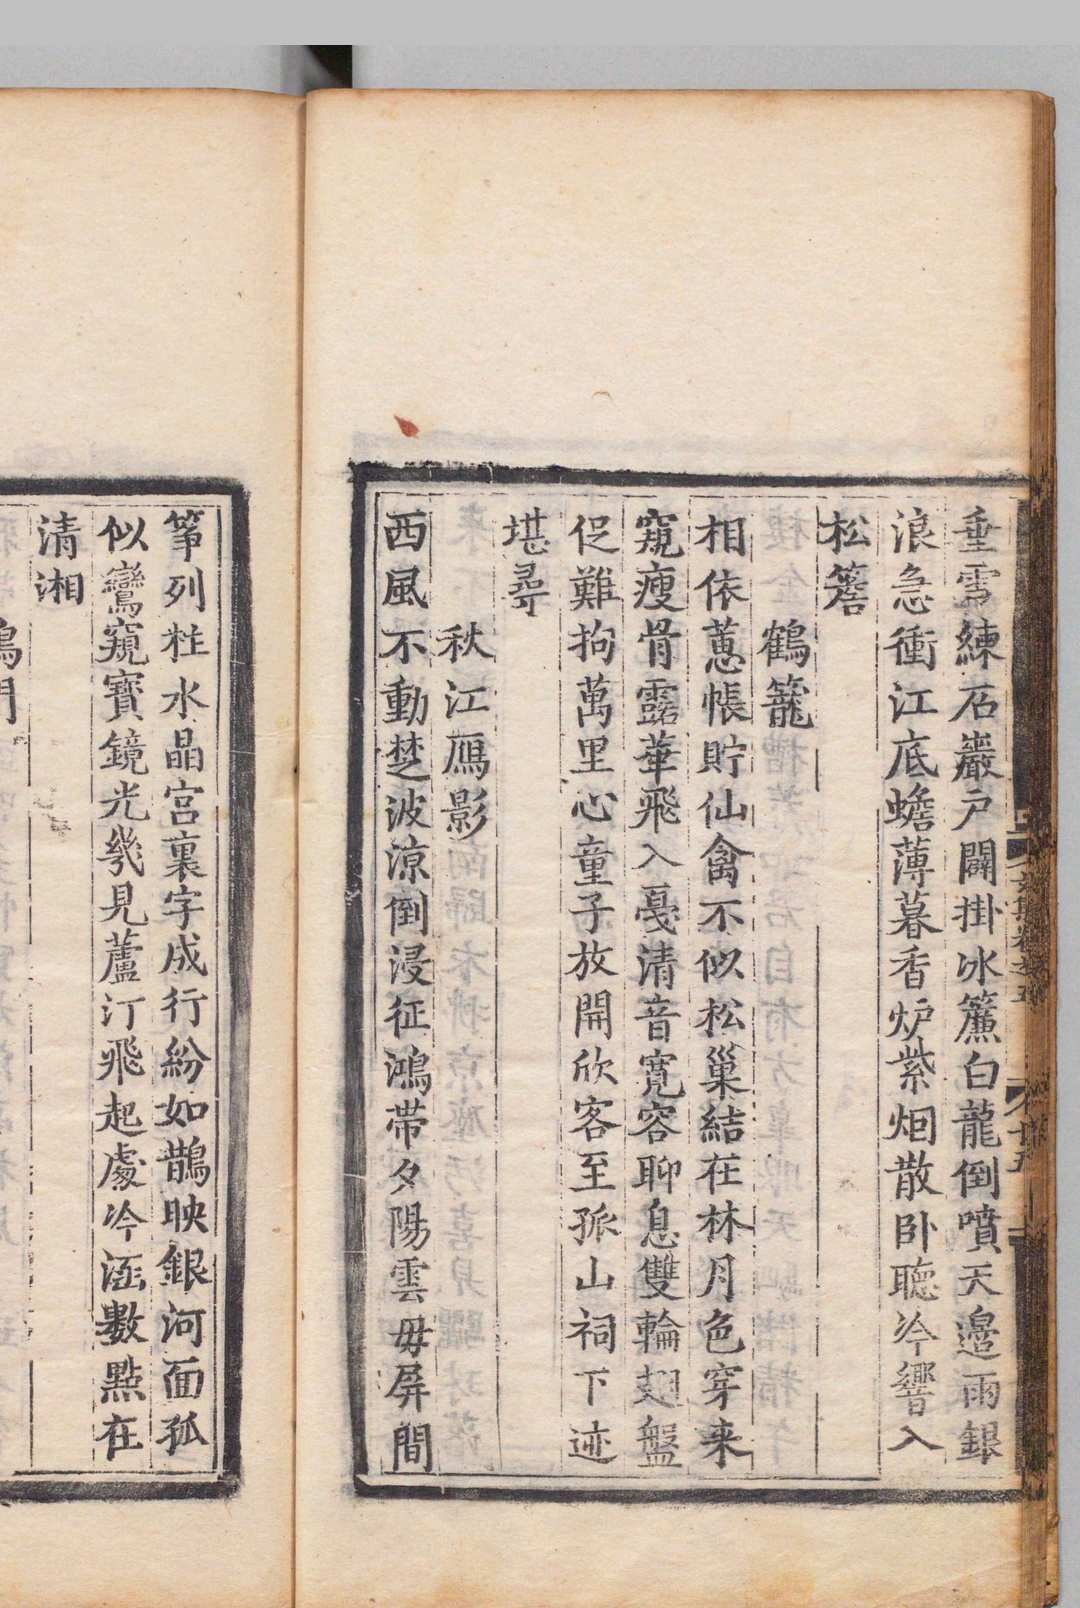 垂雪練石巖戶闢掛冰簾白龍倒噴天邊雨銀
浪急衝江底蟾薄暮香炉紫烟散卧聽冷響入
松簷
鶴籠
相依蕙帳貯仙禽不似松巢結在林月色穿来
窺瘦骨露華飛入戛清音寬容聊息雙輪翅盤
促難拘萬里心童子放開欣客至孤山祠下迹
堪尋
秋江鴈影
西風不動楚波涼倒浸征鴻帯夕陽雲母屏間
筝列柱水晶宮裏字成行紛如鵲映銀河面孤
似鸞窺寶鏡光幾見蘆汀飛起處冷涵數㸃在
清湘